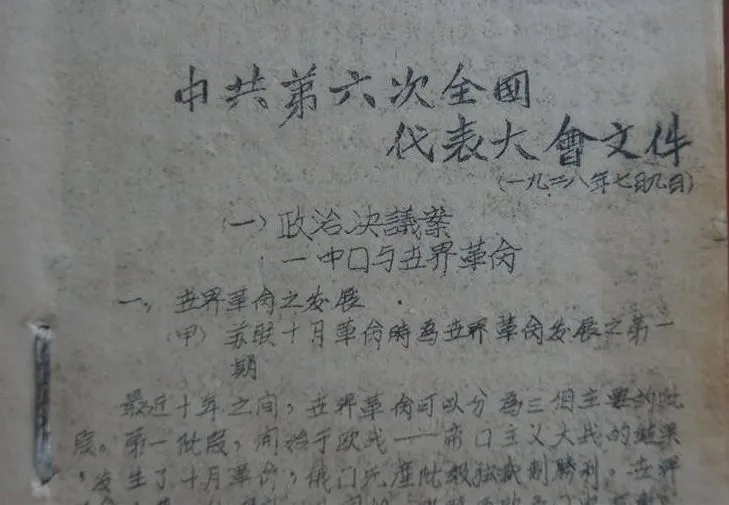 中共第六次全國
代表大會文件
(一九二八年七月九日)
(一)政治决議案
一中囗与世界革命
一,世界革命之发展
(甲)苏联十月革命時為世界革命发展之第一
期
最近十年之间,世界革命可以分為三個主要的阶
段。第一阶段,開始于欧战——帝囗主义大战的結果
,发生了十月革命,俄囗无産阶級独裁制勝利。世界